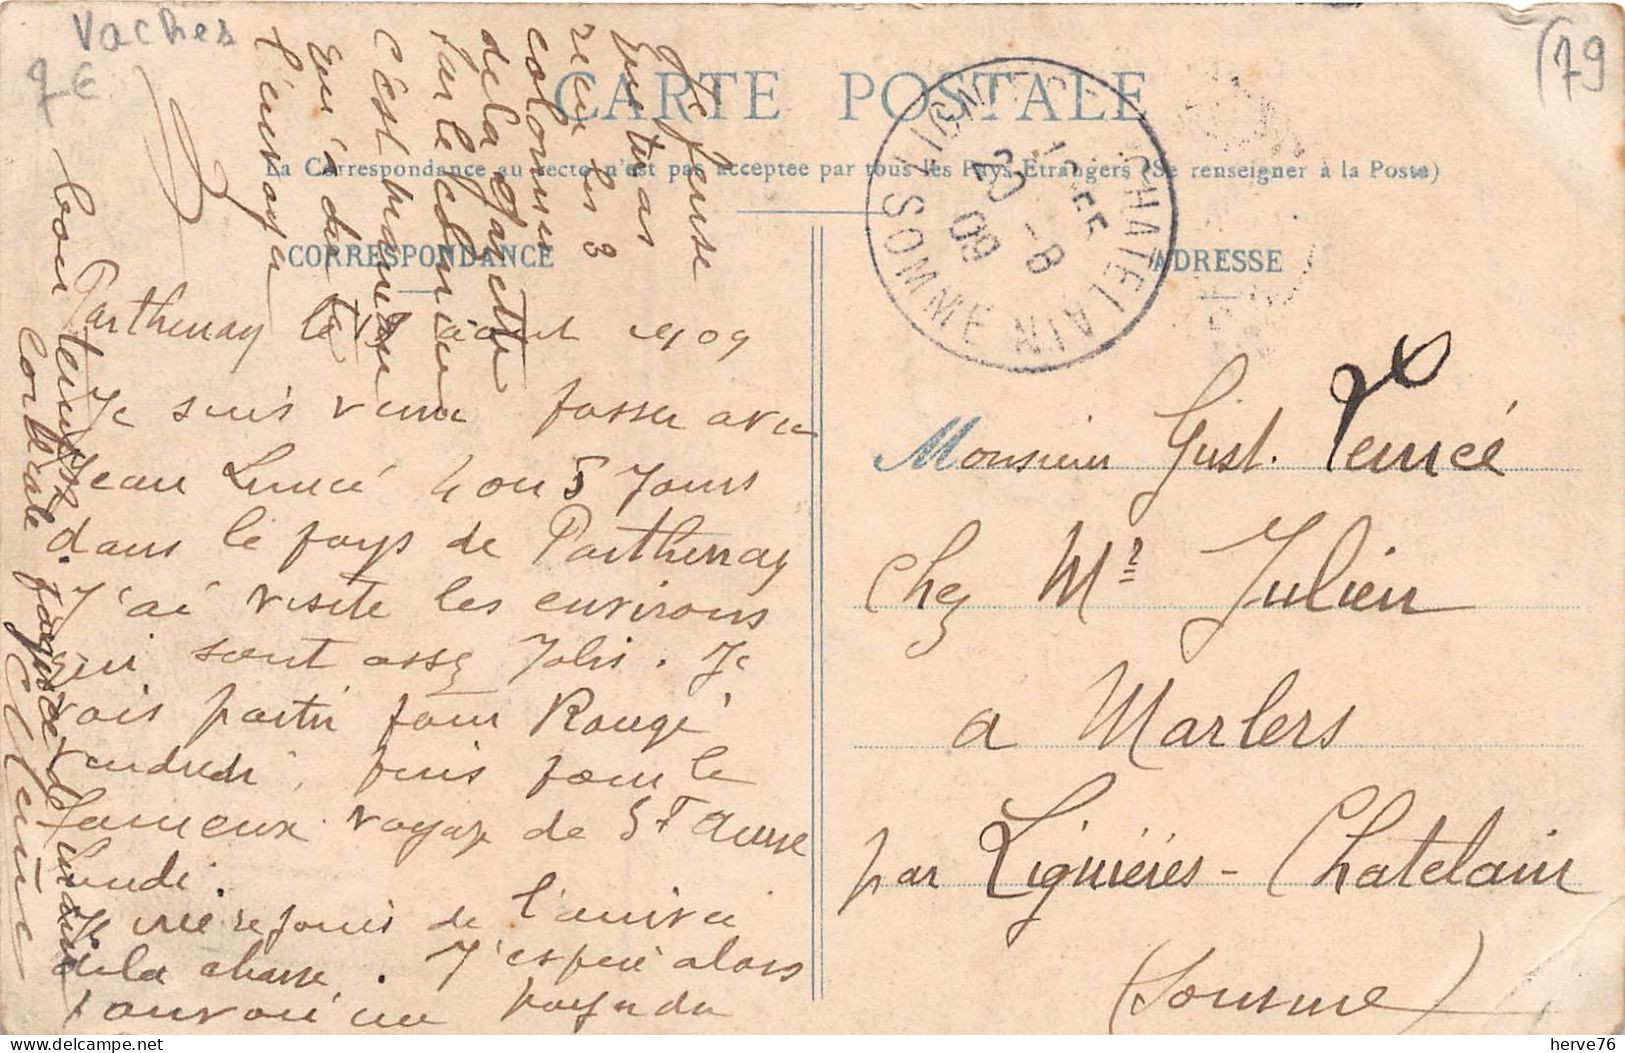 Vaches
7€
(79
CARTE POSTALE
La Correspondance au recto n'est pas acceptee par tous les Pays Etrangers (Se renseigner à la Poste)
CORRESPONDANCE
ADRESSE
LIGN CHATELAIN
SOMME
20 - 8
09
Parthenay le août 1909
Je suis venu passer avec
Jean 4 ou 5 Jours
dans le pays de Parthenay
J'ai visité les environs
qui sont assez Jolis. Je
vais partir pour Rougé
vendredi, puis pour le
fameux voyage de St Anne
Lundi.
Je me rejouis de
de la chasse. J'espère alors
Je pense
que tu as
reçu les 3
colonnes
de la gazette
c'est
qu'on a
l'envoyer
bon
cordiale poignée de main
Monsieur Gust.
chez Mr Julien
a Marlers
par Lignières-Chatelain
(Somme)
herve76